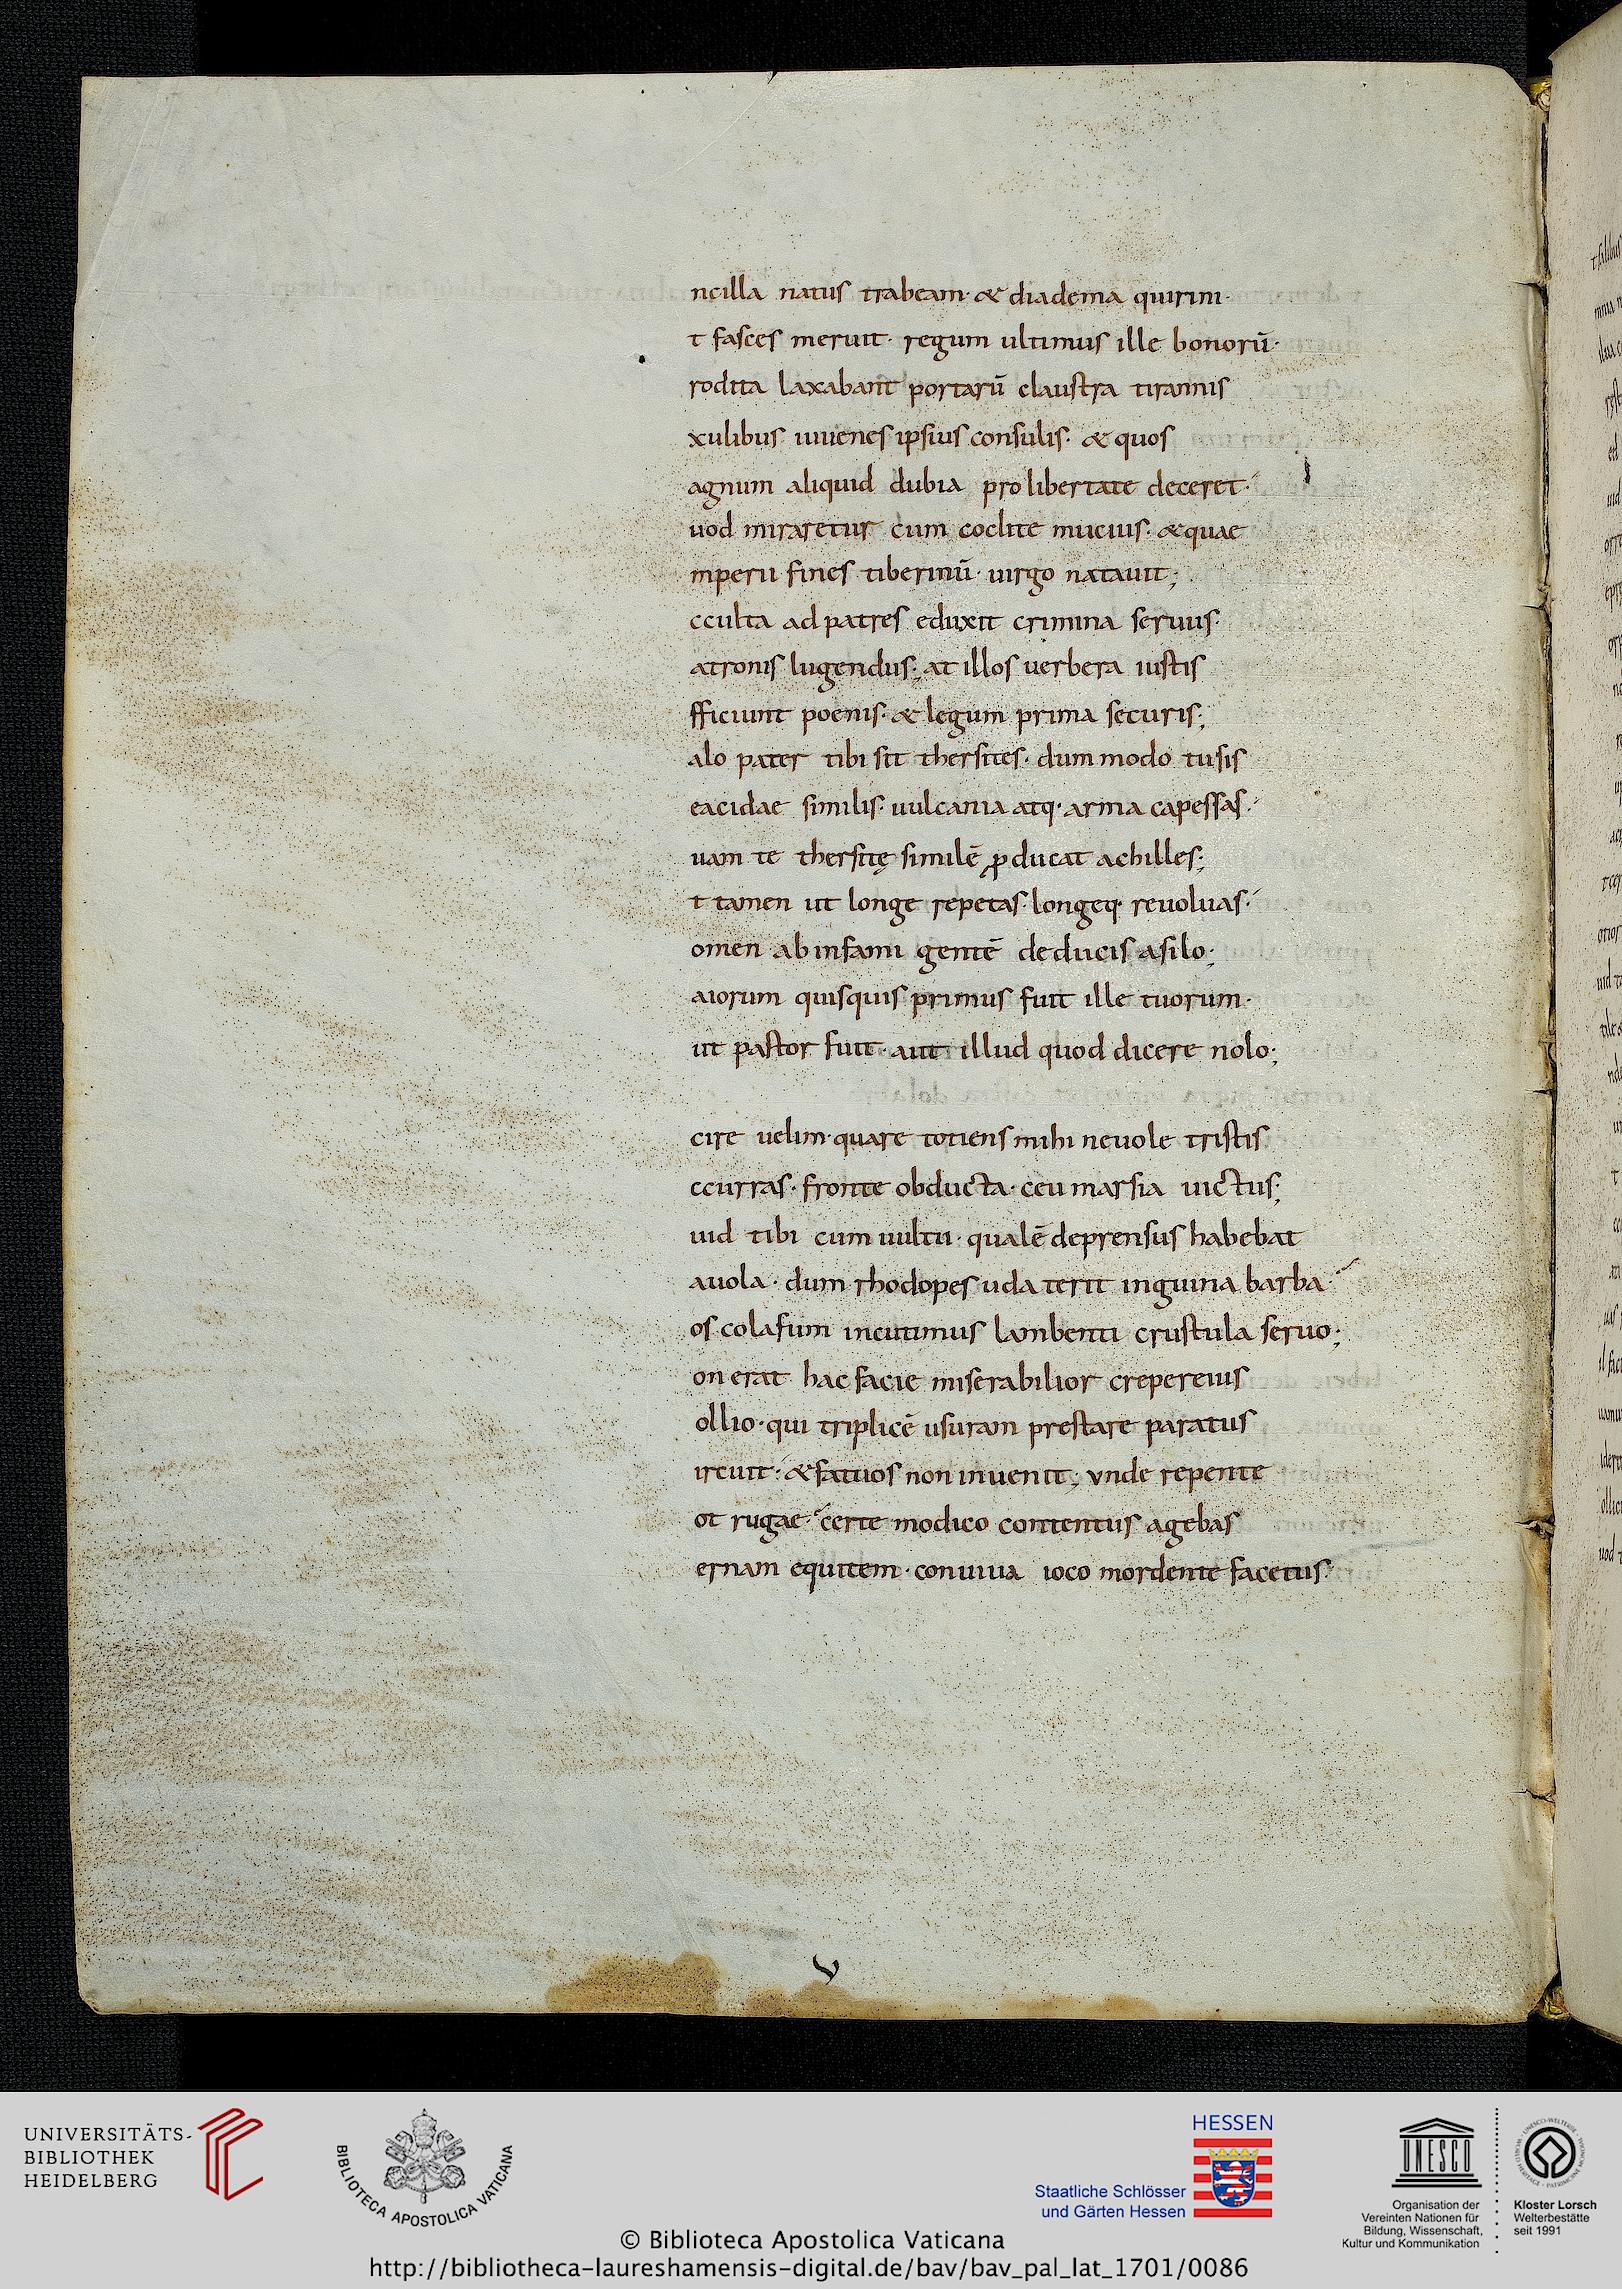 ncilla natus trabeam· & diadema quirini·
t fasces meruit· regum ultimus ille bonorū·
rodita laxabant portarū claustra tirannis
xulibus iuuenes ipsius consulis· & quos
agnum aliquid dubia pro libertate deceret·
uod miraretur cum coclite mucius· & quae
mperii fines tiberinū· uirgo natauit;
cculta ad patres eduxit crimina seruus·
atronis lugendus; at illos uerbera iustis
fficiunt poenis· & legum prima securis;
alo pater tibi sit thersites· dum modo tu sis
eacidae similis· uulcania atq· arma capessas·
uam te thersitę similē ꝓducat achilles;
t tamen ut longe repetas· longeq· reuoluas·
omen ab infami gentē deducis asilo;
aiorum quisquis primus fuit ille tuorum·
ut pastor fuit· aut illud quod dicere nolo;
cire uelim· quare totiens mihi neuole tristis
ccurras· fronte obducta· ceu marsia uictus;
uid tibi cum uultu· qualē deprensus habebat
auola· dum rhodopes uda terit inguina barba·
os colafum incutimus lambenti crustula seruo;
on erat hac facie miserabilior crepereius
ollio· qui triplicē usuram prestare paratus
ircuit· & fatuos non inuenit; vnde repente
ot rugae· certe modico contentus agebas
ernam equitem· conuiua ioco mordente facetus·
UNIVERSITÄTS-
BIBLIOTHEK
HEIDELBERG
BIBLIOTECA APOSTOLICA VATICANA
HESSEN
Staatliche Schlösser
und Gärten Hessen
UNESCO
Organisation der
Vereinten Nationen für
Bildung, Wissenschaft,
Kultur und Kommunikation
Kloster Lorsch
Welterbestätte
seit 1991
© Biblioteca Apostolica Vaticana
http://bibliotheca-laureshamensis-digital.de/bav/bav_pal_lat_1701/0086